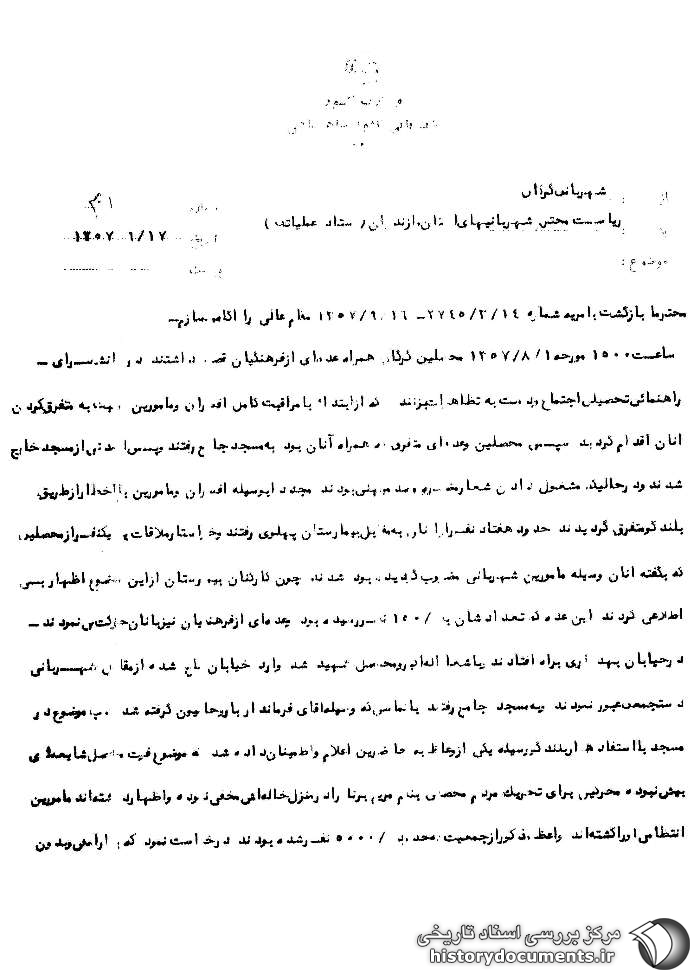 از
شهربانی گرگان
شماره
به
ریاست محترم شهربانیهای استان مازندران ( ستاد عملیات )
تاریخ ۱۳۵۷
موضوع :
پیوست
محترما بازگشت بامریه شماره ۲۷۴۵/۲/۱۴ - ۱۳۵۷/۹/۱۶ مقام عالی را آگاه میسازم -
ساعت ۱۵۰۰ مورخه ۱۳۵۷/۸/۱ محصلین گرگان همراه عده‌ای از فرهنگیان قصد داشتند در دانشسرای -
راهنمائی تحصیلی اجتماع و دست به تظاهرات بزنند که از ابتدا با مراقبت کامل افسران و مامورین نسبت به متفرق کردن
آنان اقدام گردید سپس محصلین و عده‌ای متفرقه همراه آنان بود به مسجد جامع رفتند و پس از مدتی از مسجد خارج
شدند و در حالیکه مشغول دادن شعار بودند مجددا بوسیله افسران و مامورین با اخطار از طریق
بلندگو متفرق گردیدند حدود هفتاد نفر از آنان به مقابل بیمارستان پهلوی رفتند و خواستار ملاقات با یکنفر از محصلین
که بگفته آنان وسیله مامورین شهربانی مضروب گردیده بود شدند چون کارکنان بیمارستان از این موضوع اظهار بی
اطلاعی کردند این عده که تعدادشان به /۱۵۰ نفر رسیده بود و عده‌ای از فرهنگیان نیز با آنان حرکت می نمودند -
در خیابان پهلوی براه افتادند و با شعار محصل شهید شد وارد خیابان کاخ شده از مقابل شهربانی
دستجمعی عبور نمودند و به مسجد جامع رفتند با تماسی که وسیله آقای فرماندار با روحانیون گرفته شد موضوع در
مسجد با استفاده از بلندگو وسیله یکی از وعاظ به حاضرین اعلام و اطمینان داده شد که موضوع فوت محصل شایعه‌ای
بیش نبوده محرکین برای تحریک مردم محصلی بنام را در منزل خاله‌اش مخفی نموده و اظهار داشته‌اند مامورین
انتظامی او را کشته‌اند واعظ مذکور از جمعیت که حدود /۵۰۰۰ نفر شده بودند درخواست نمود که با آرامش و بدون
مرکز بررسی اسناد تاریخی
historydocuments.ir